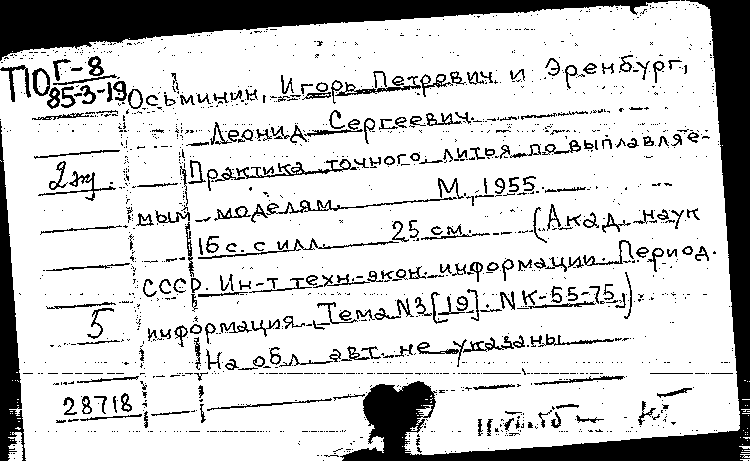 ПО Г-8
85-3-19
Осьминин, Игорь Петрович и Эренбург,
Леонид Сергеевич.
2 экз.
Практика точного литья по выплавляе-
мым моделям. М., 1955.
16 с. с илл. 25 см. (Акад. наук
СССР. Ин-т техн.-экон. информации. Период.
5
информация. Тема N3[19]. NК-55-75.)
На обл. авт. не указаны
28718